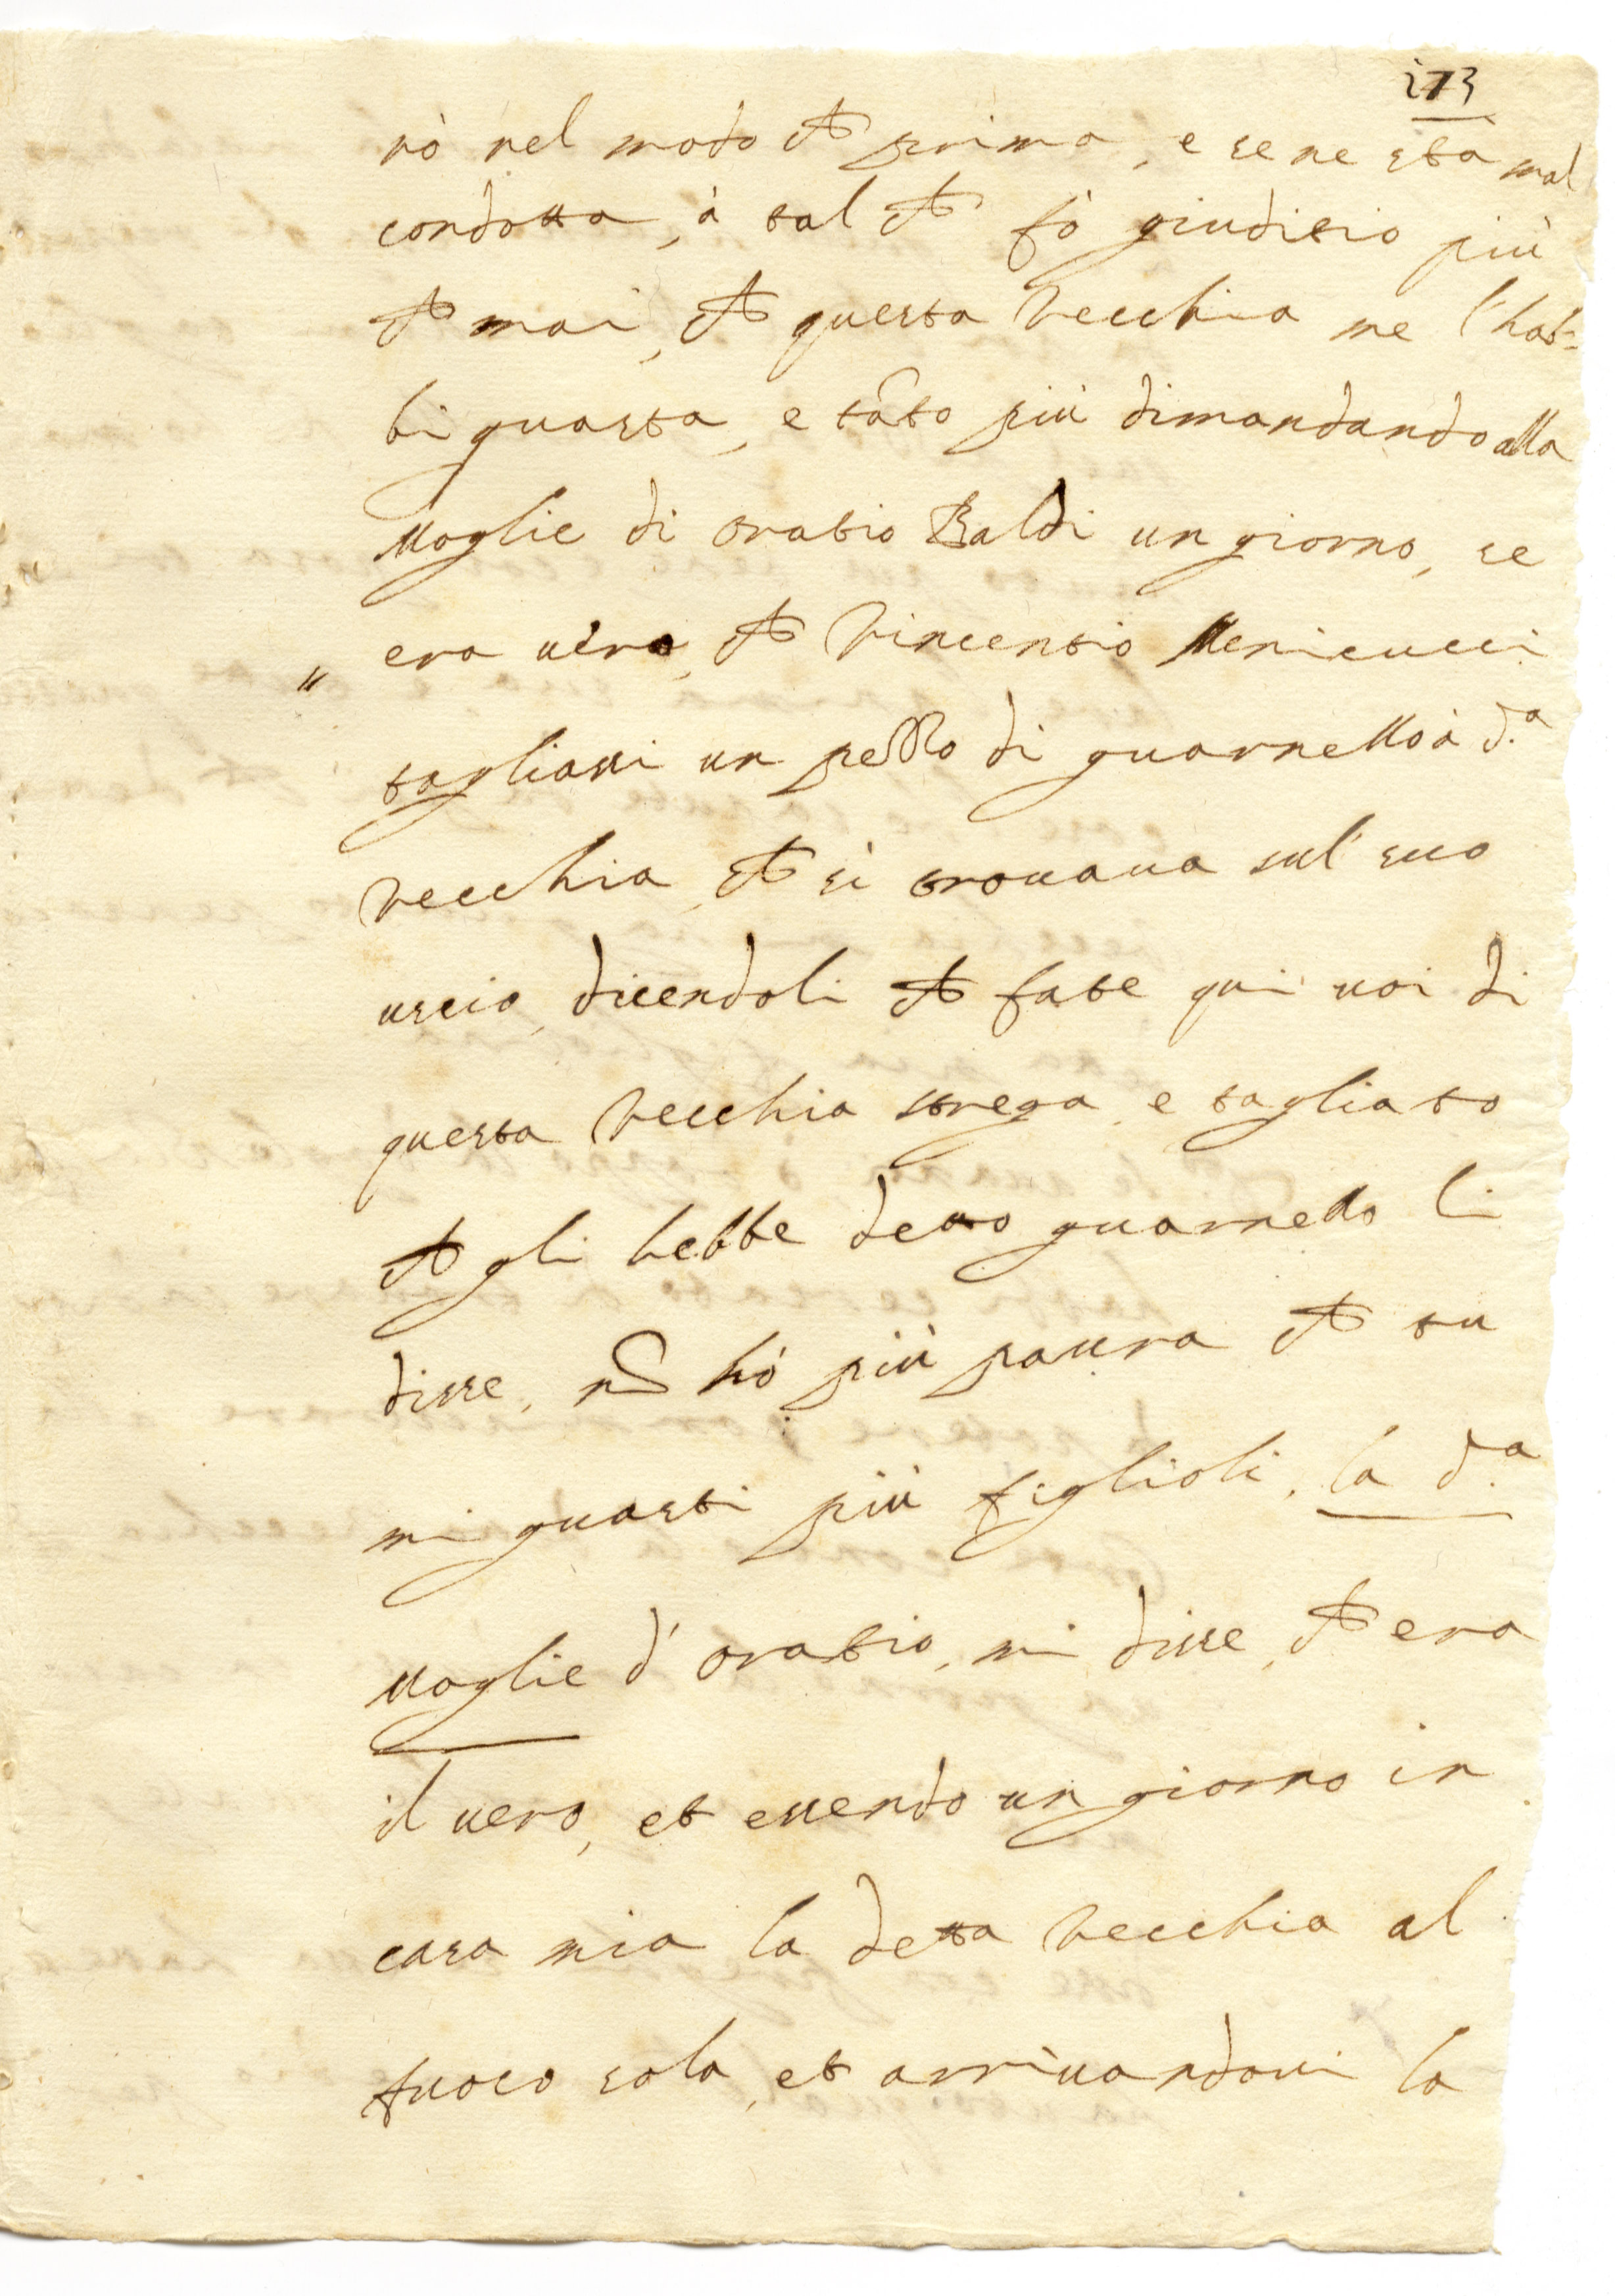 173
rò nel modo che prima, e se ne stà mal
condotta, à tal che fò giuditio più
che mai, che questa Vecchia me l'hab-
bi guasta, e tãto più dimandando alla
Moglie di Oratio Baldi un giorno, se
era uero, che Vincentio Menicucci
" tagliassi un pezzo di guarnello à d.ª
Vecchia, che si trouaua sul' suo
uscio, dicendoli che fate qui uoi di
questa Vecchia strega, e tagliato
che gli hebbe detto guarnello li
disse, nõ hò più paura che tu
mi guasti più figlioli, la d.ª
Moglie d'Oratio, mi disse, che era
il uero, et essendo un giorno in
casa mia la detta Vecchia al
fuoco sola, et arriuandoui la